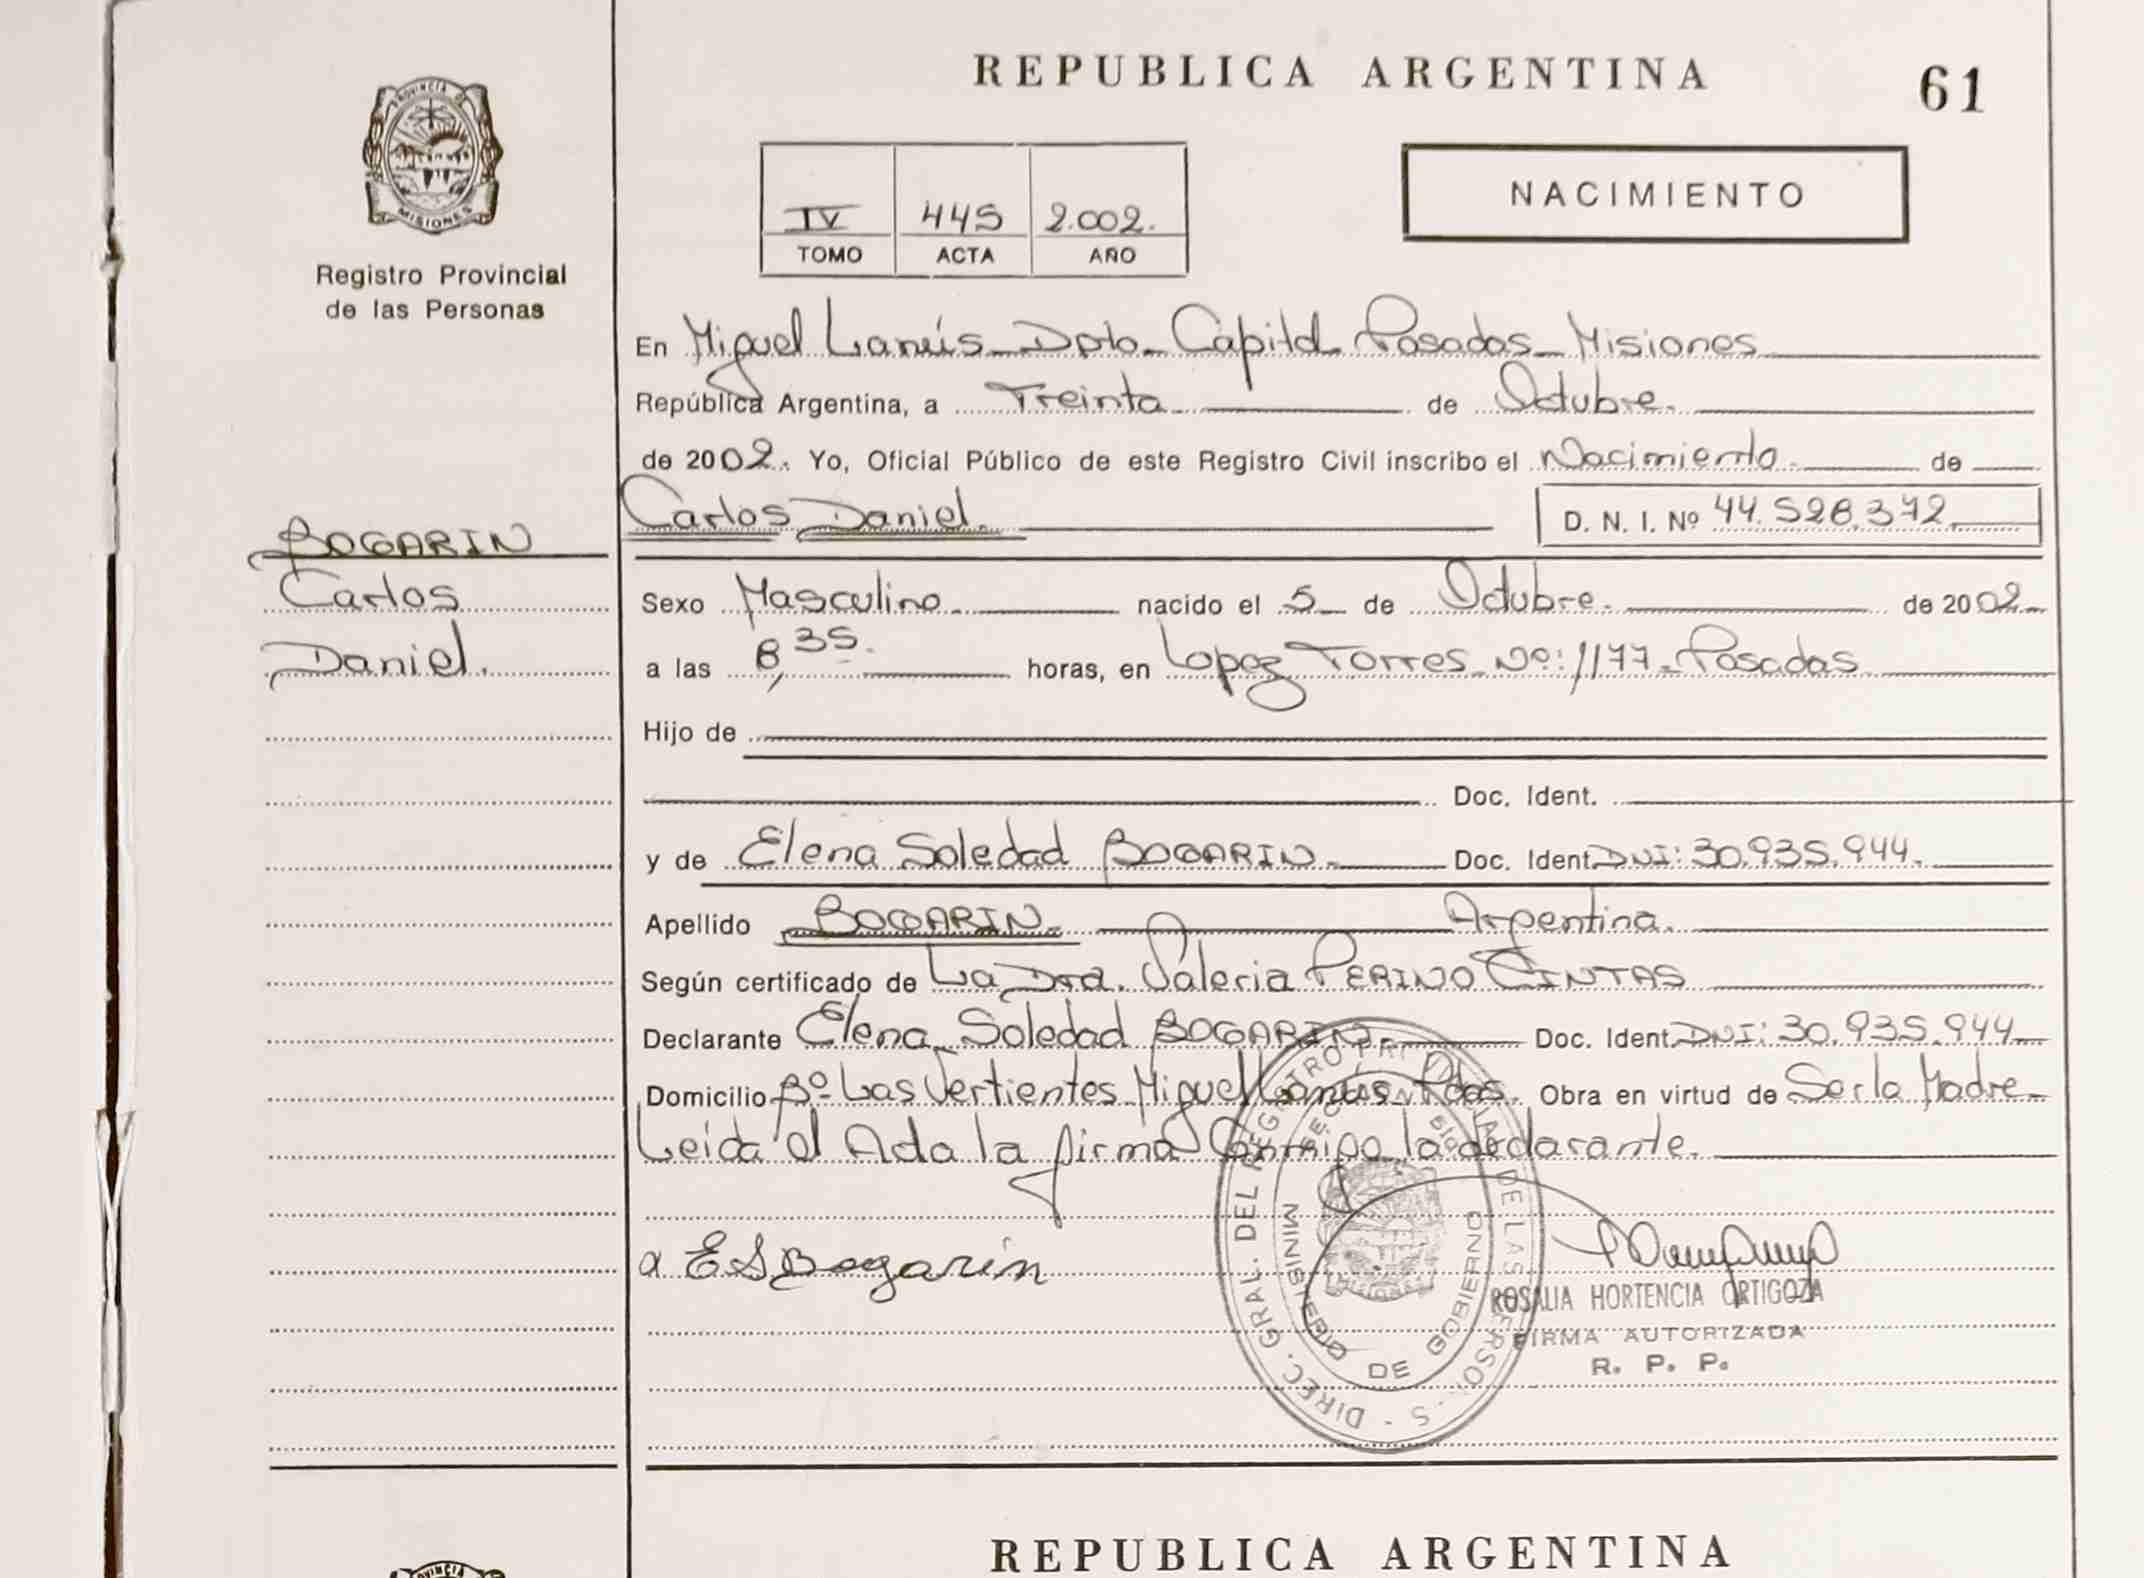 REPUBLICA ARGENTINA
61
PROVINCIA DE
MISIONES
Registro Provincial
de las Personas
IV 445 2.002.
TOMO ACTA AÑO
NACIMIENTO
En Miguel Lanús - Dpto - Capital - Posadas - Misiones
República Argentina, a Treinta de Octubre.
de 2002. Yo, Oficial Público de este Registro Civil inscribo el Nacimiento. de
Carlos Daniel. D. N. I. Nº 44.528.372.
BOGARIN
Carlos
Daniel.
Sexo Masculino nacido el 5 de Octubre. de 2002
a las 8,35. horas, en Lopez Torres Nº: 1177 - Posadas
Hijo de
Doc. Ident.
y de Elena Soledad BOGARIN. Doc. Ident. DNI: 30.935.944.
Apellido BOGARIN. Argentina.
Según certificado de La Dra. Valeria PERINO CINTAS
Declarante Elena Soledad BOGARIN. Doc. Ident. DNI: 30.935.944
Domicilio Bº Las Vertientes Miguel Lanús - Pdas. Obra en virtud de Ser la Madre
Leida el Acta la firma Conmigo la declarante.
E S Bogarin
DIREC. GRAL. DEL REGISTRO DE LAS
MINISTERIO DE GOBIERNO
ROSALIA HORTENCIA ORTIGOZA
FIRMA AUTORIZADA
R. P. P.
REPUBLICA ARGENTINA